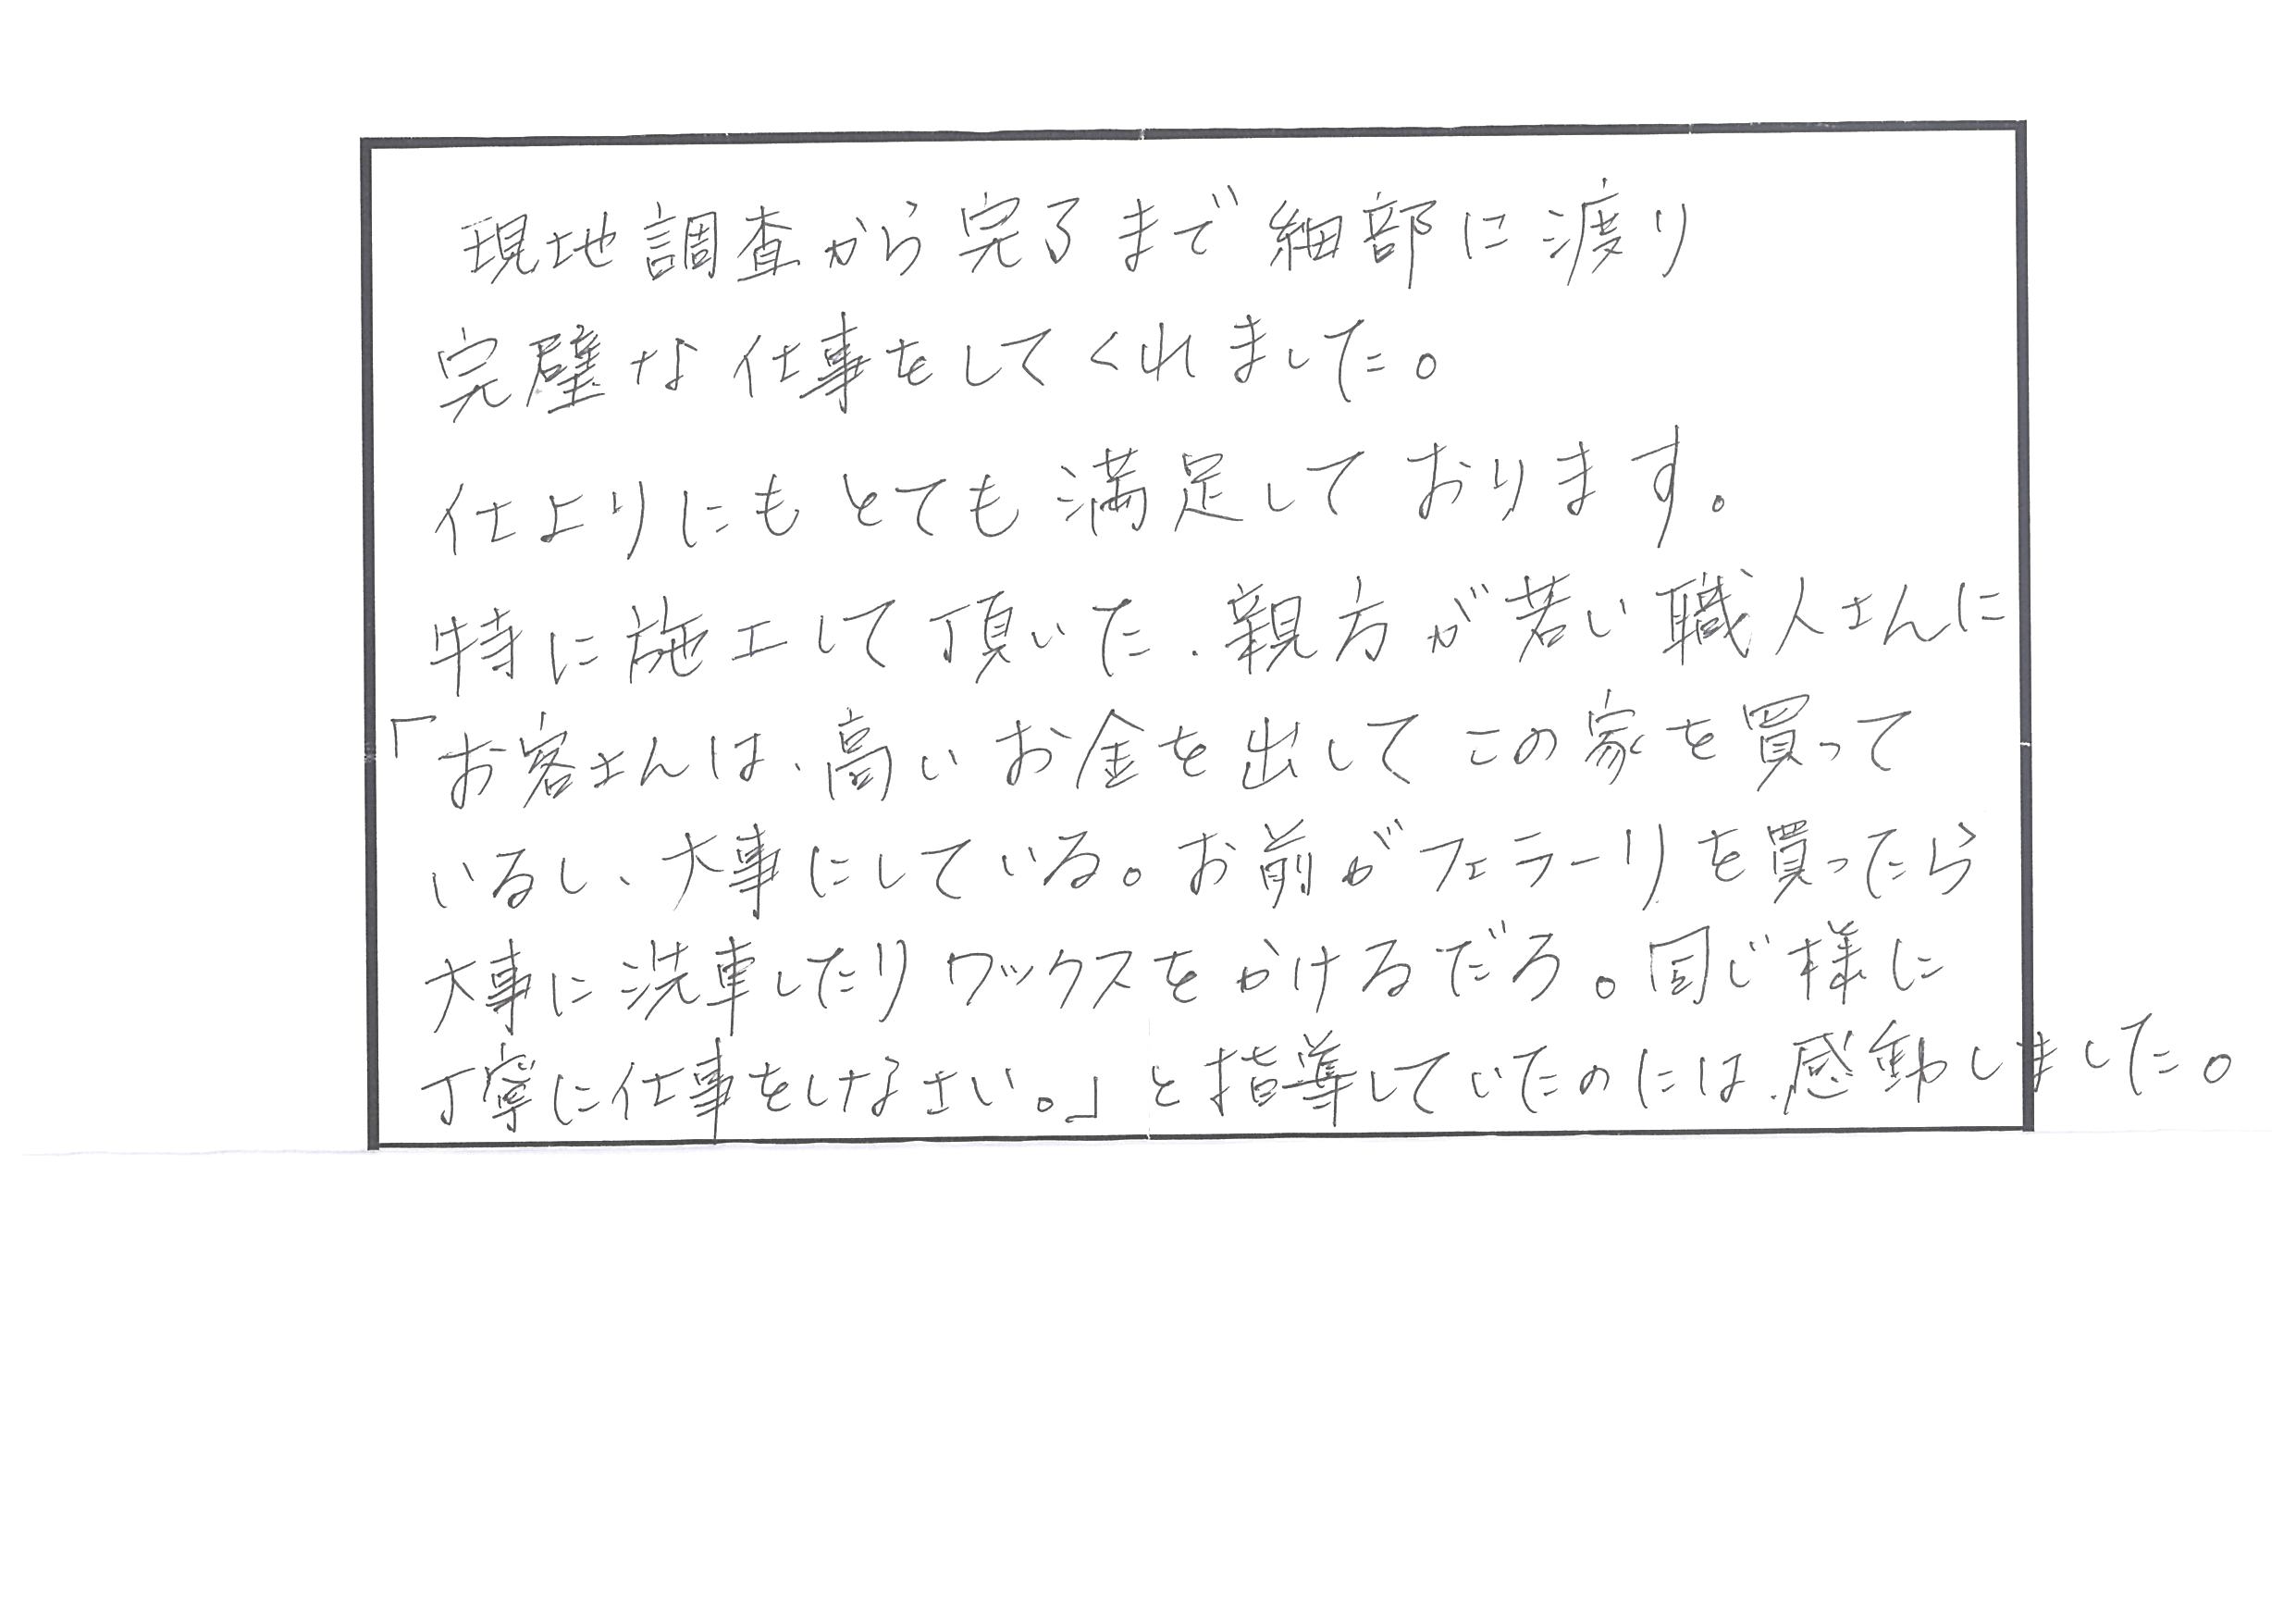 現地調査から完了まで細部に渡り
完璧な仕事をしてくれました。
仕上りにもとても満足しております。
特に施工して頂いた、親方が若い職人さんに
「お客さんは、高いお金を出してこの家を買って
いるし、大事にしている。お前がフェラーリを買ったら
大事に洗車したりワックスをかけるだろ。同じ様に
丁寧に仕事をしなさい。」と指導していたのには、感動しました。